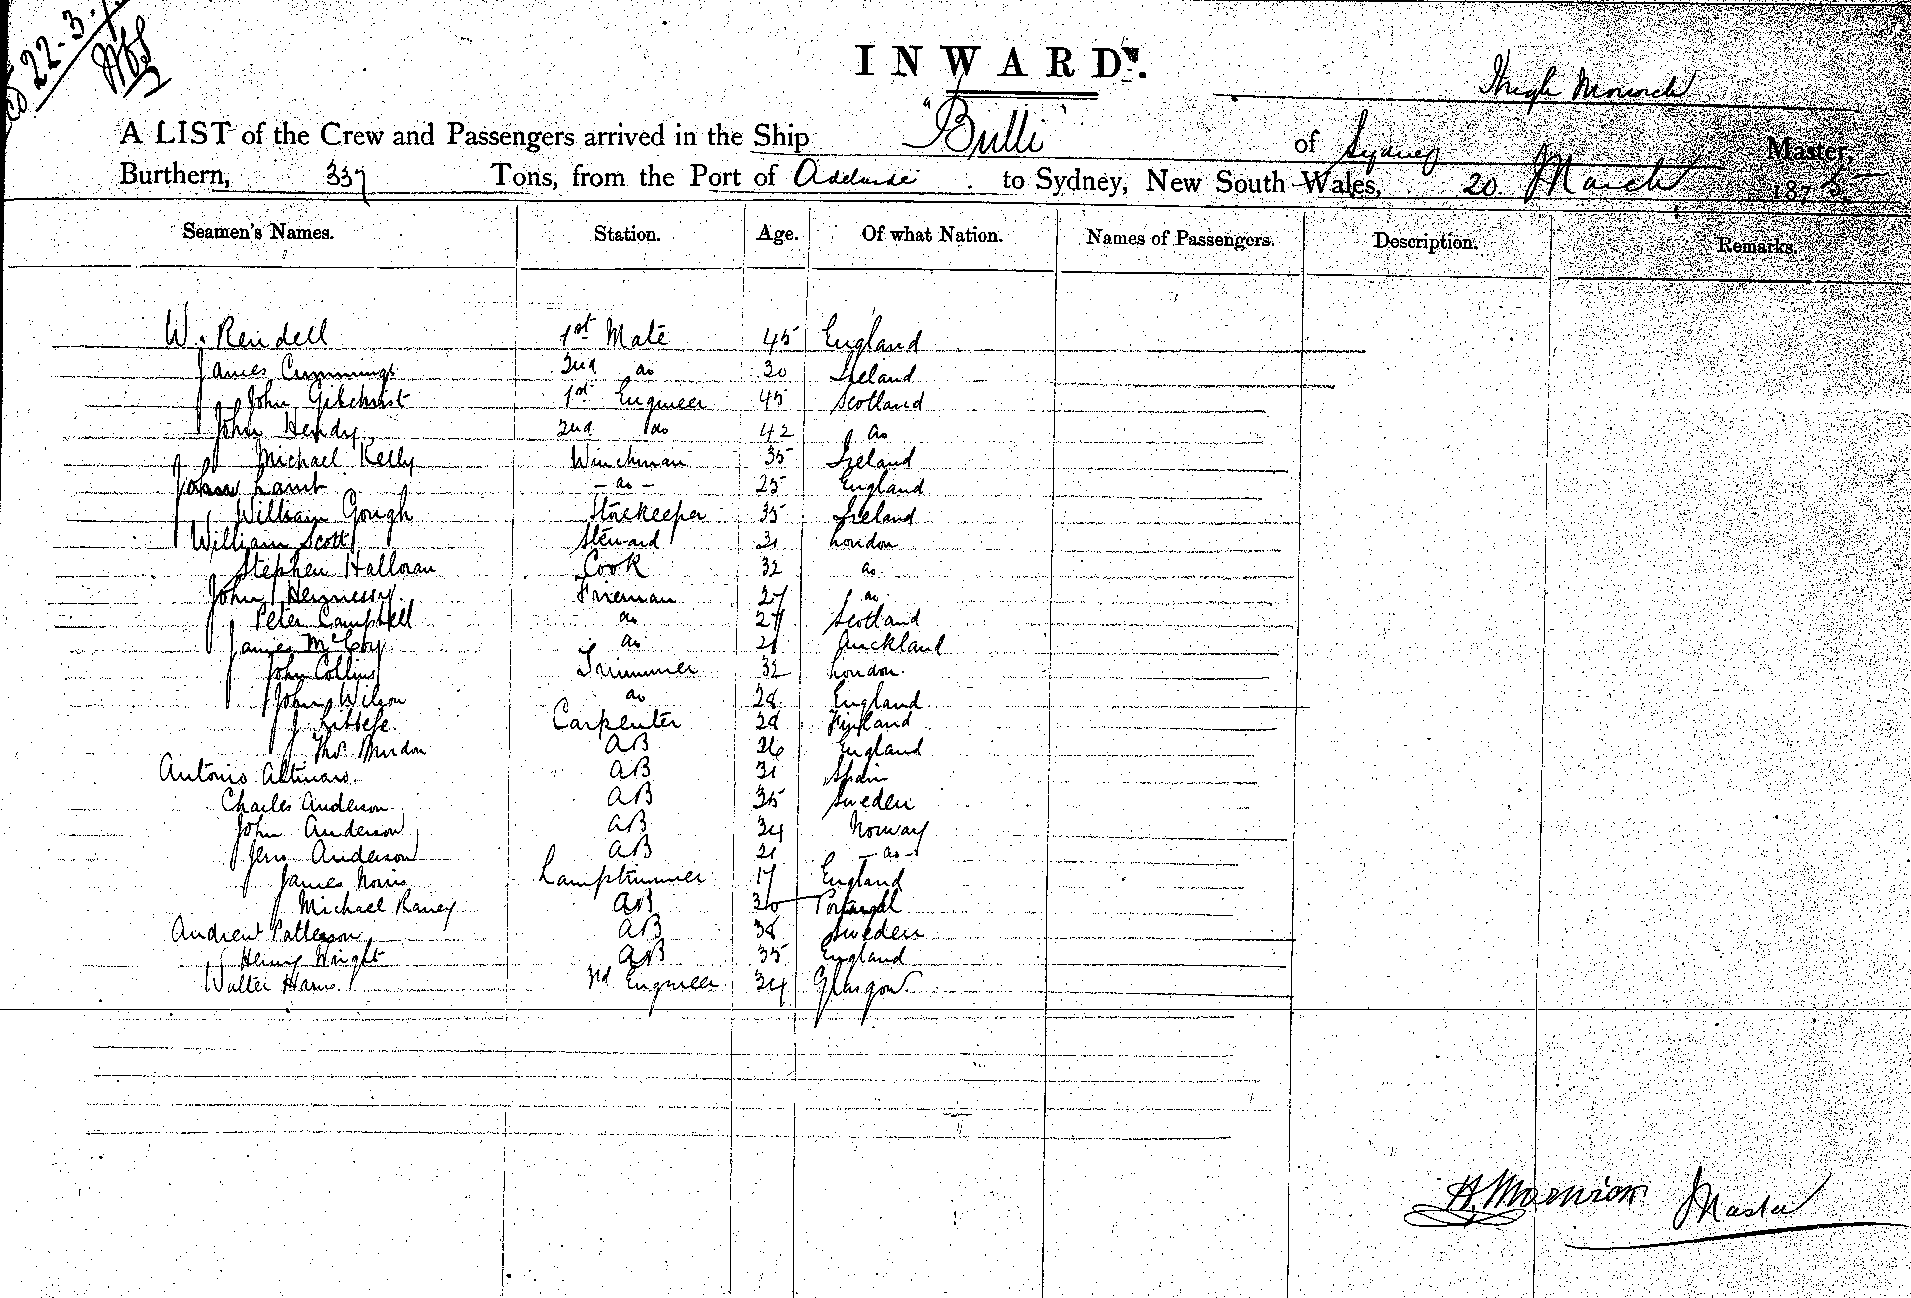 22-3-
INWARD.
Hugh
A LIST of the Crew and Passengers arrived in the Ship "Bulli" of Sydney Master,
Burthern, 337 Tons, from the Port of Adelaide to Sydney, New South Wales, 20 March 187
Seamen's Names. Station. Age. Of what Nation. Names of Passengers. Description. Remarks
W. Rendell 1st Mate 45 England
James Cummings 2nd do 30 Ireland
John Gilchrist 1st Engineer 45 Scotland
John Hendy 2nd do 42 do
Michael Kelly Winchman 35 Ireland
John Lamb - do - 25 England
William Gough Storekeeper 35 Ireland
William Scott Steward 31 London
Stephen Halloran Cook 32 do
John Hennessy Fireman 27 do
Peter Campbell do 27 Scotland
James McCoy do 28 Auckland
John Collins Trimmer 32 London
John Wilson do 28 England
J. Carpenter 28 Finland
Thos AB 26 England
Antonio AB 31 Spain
Charles Anderson AB 35 Sweden
John Anderson AB 34 Norway
Jens Anderson AB 21 - do -
James Norris Lamptrimmer 17 England
Michael Raney AB 30 Portugal
Andrew Patterson AB 38 Sweden
Henry Wright AB 35 England
Walter Harris 3rd Engineer 34 Glasgow
H. Master